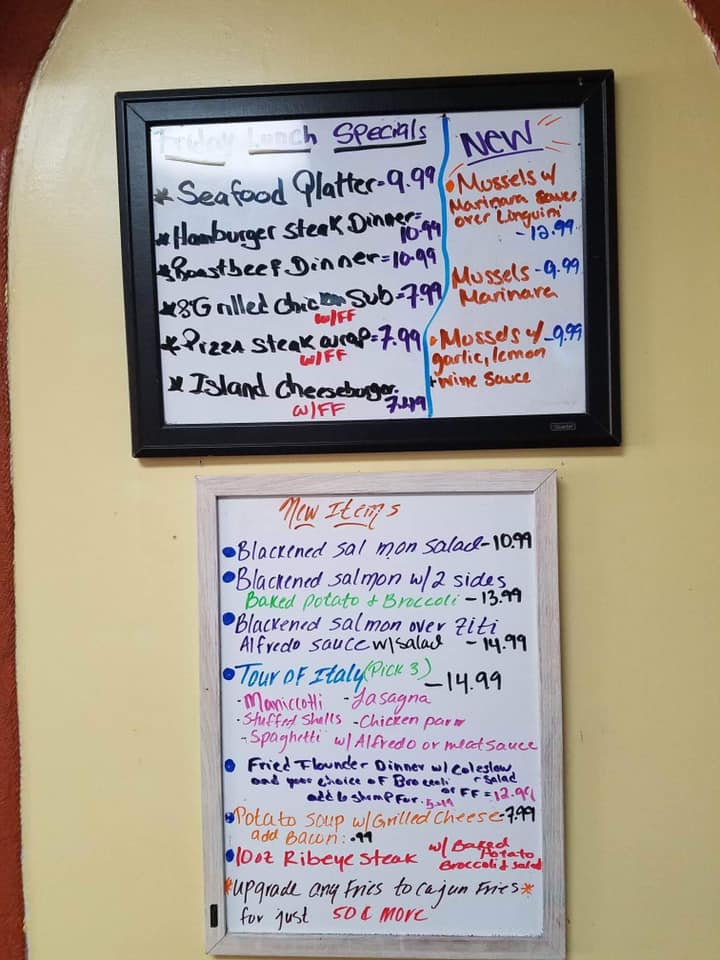 Friday Lunch Specials
* Seafood Platter = 9.99
* Hamburger Steak Dinner =
10.99
* Roastbeef Dinner = 10.99
* 8" Grilled Chicken Sub = 7.99
w/FF
* Pizza Steak wrap = 7.99
w/FF
* Island Cheeseburger.
w/FF 7.49
NEW
• Mussels w/
Marinara Sauce
over Linguini
- 12.99
Mussels - 9.99
Marinara
• Mussels w/ - 9.99
garlic, lemon
+ wine sauce
Quartet
New Items
• Blackened Salmon Salad - 10.99
• Blackened salmon w/2 sides
Baked Potato + Broccoli - 13.99
• Blackened salmon over Ziti
Alfredo sauce w/salad - 14.99
• Tour OF Italy (Pick 3) - 14.99
- Maniccotti - Lasagna
- Stuffed Shells - Chicken parm
- Spaghetti w/Alfredo or meat sauce
• Fried Flounder Dinner w/ coleslaw
and your choice of Broccoli r salad
or FF = 12.99
add 6 shrimp for. 5.49
• Potato soup w/Grilled Cheese - 7.99
add Bacon: .99
• 10oz Ribeye Steak w/ Baked
Potato
Broccoli & salad
*upgrade any Fries to Cajun Fries*
for just 50¢ more